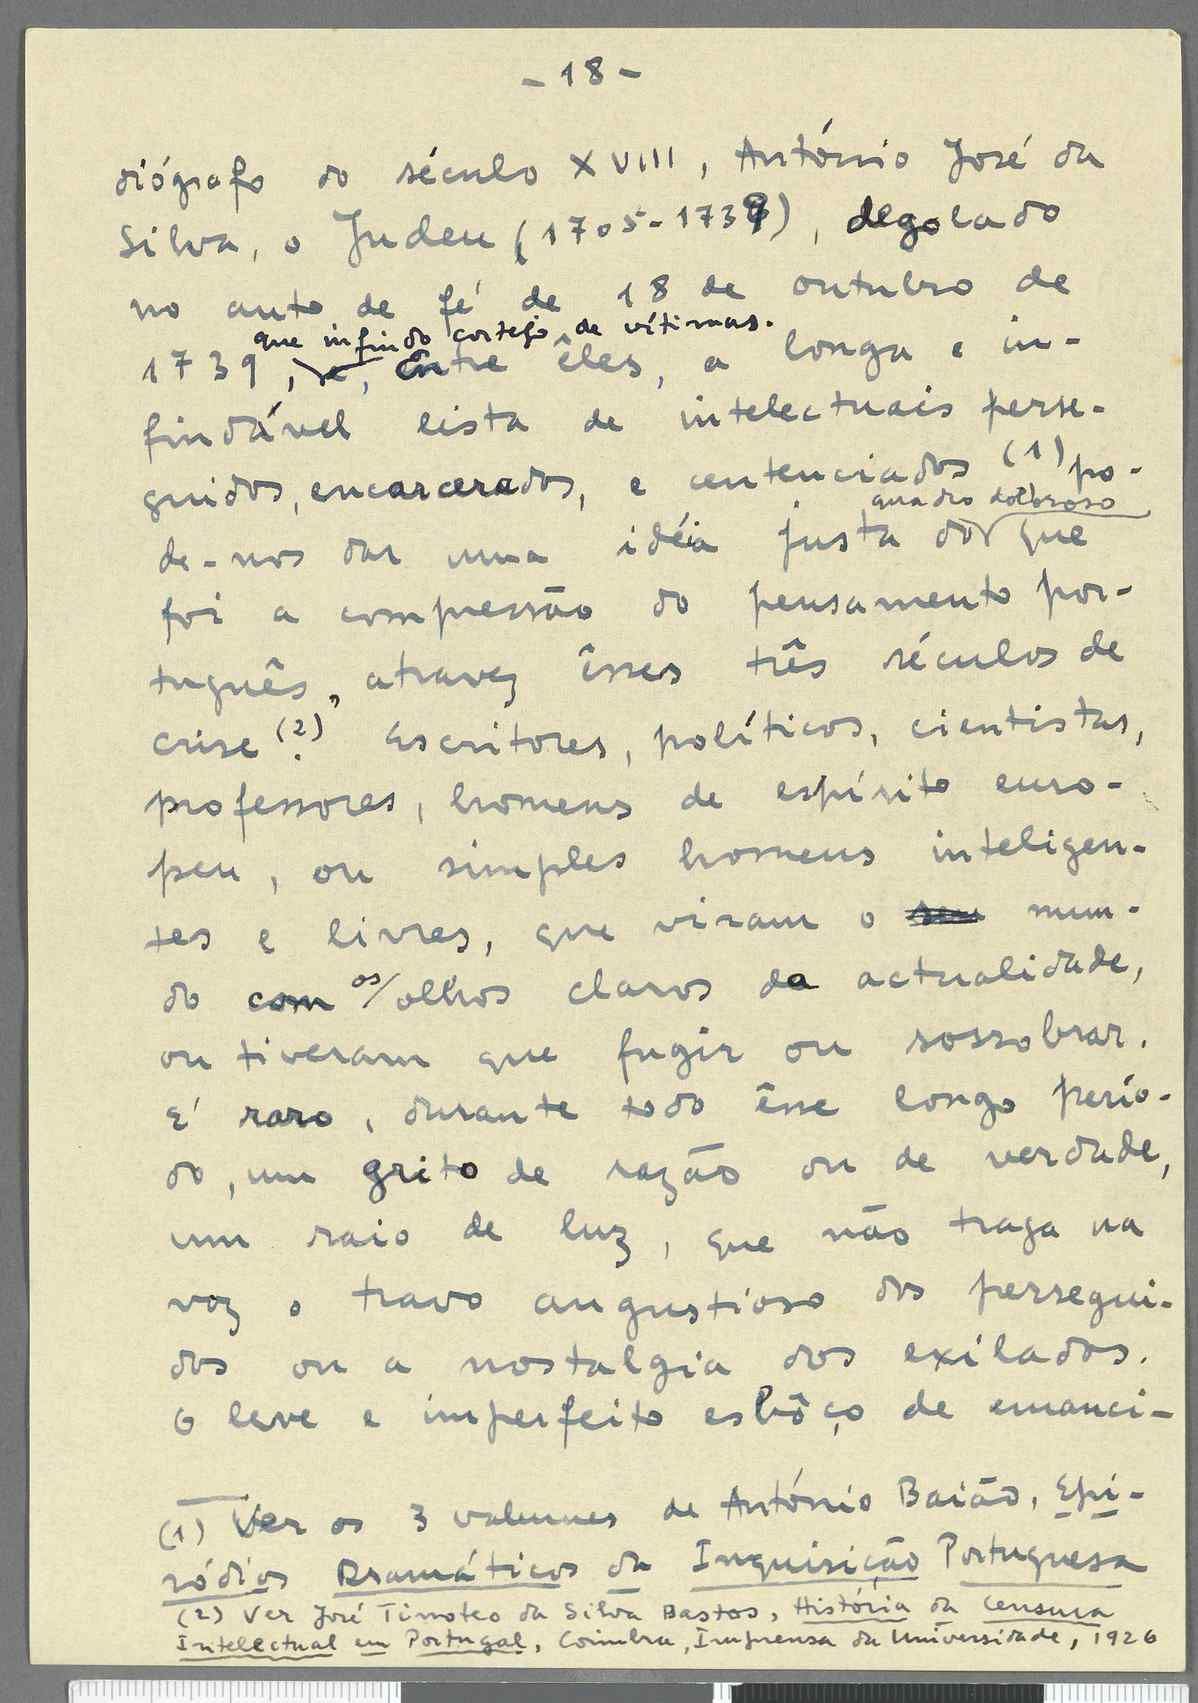 - 18 -
diógrafo do século XVIII, António José da
Silva, o Judeu (1705-1739), degolado
no auto de fé de 18 de outubro de
que infindo cortejo de vítimas.
1739, e, Entre êles, a longa e in-
findável lista de intelectuais perse-
guidos, encarcerados, e centenciados (1) po-
quadro doloroso
de-nos dar uma idéia justa do que
foi a compressão do pensamento por-
tuguês, atravez êsses três séculos de
crise (2). Escritores, políticos, cientistas,
professores, homens de espírito euro-
peu, ou simples homens inteligen-
tes e livres, que viram o seu mun-
do com os olhos claros da actualidade,
ou tiveram que fugir ou sossobrar.
É raro, durante todo êsse longo perío-
do, um grito de razão ou de verdade,
um raio de luz, que não traga na
voz o travo angustioso dos persegui-
dos ou a nostalgia dos exilados.
O leve e imperfeito esbôço de emanci-
(1) Ver os 3 volumes de António Baião, Epi-
sódios Dramáticos da Inquisição Portuguesa
(2) Ver José Timoteo da Silva Bastos, História da Censura
Intelectual em Portugal, Coimbra, Imprensa da Universidade, 1926